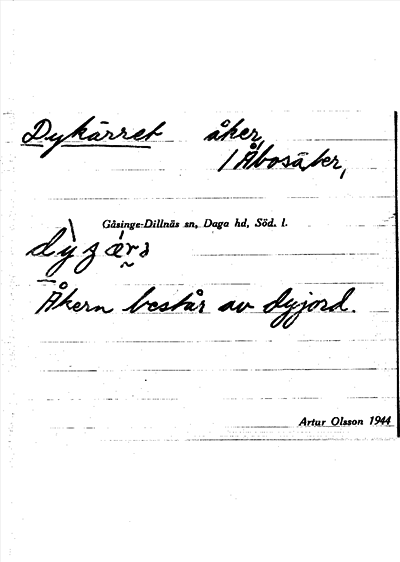 Dykärret åker,
/ Åbosäter,
Gåsinge-Dillnäs sn, Daga hd, Söd. l.
Åkern består av dyjord.
Artur Olsson 1944